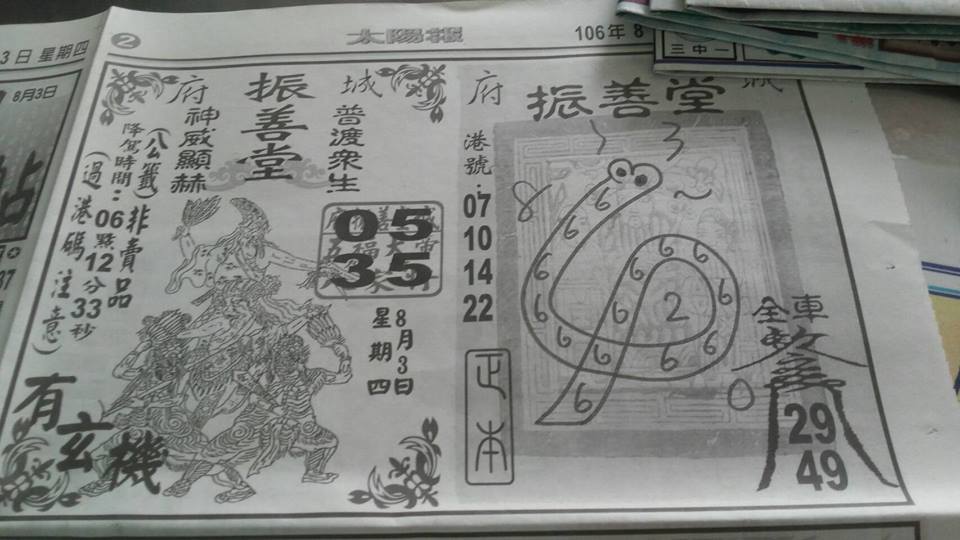 3日 星期四
2
太陽報
106年 8
三中一
8月3日
府城
振善堂
神威顯赫
普渡眾生
(八公籤)非賣品
降駕時間：06點12分33秒
(過港碼注意)
05
35
8月3日
星期四
有玄機
府
振善堂
港號：
07
10
14
22
正本
8
6
6
6
6
6
6
6
6
6
6
6
6
2
0
全車
29
49